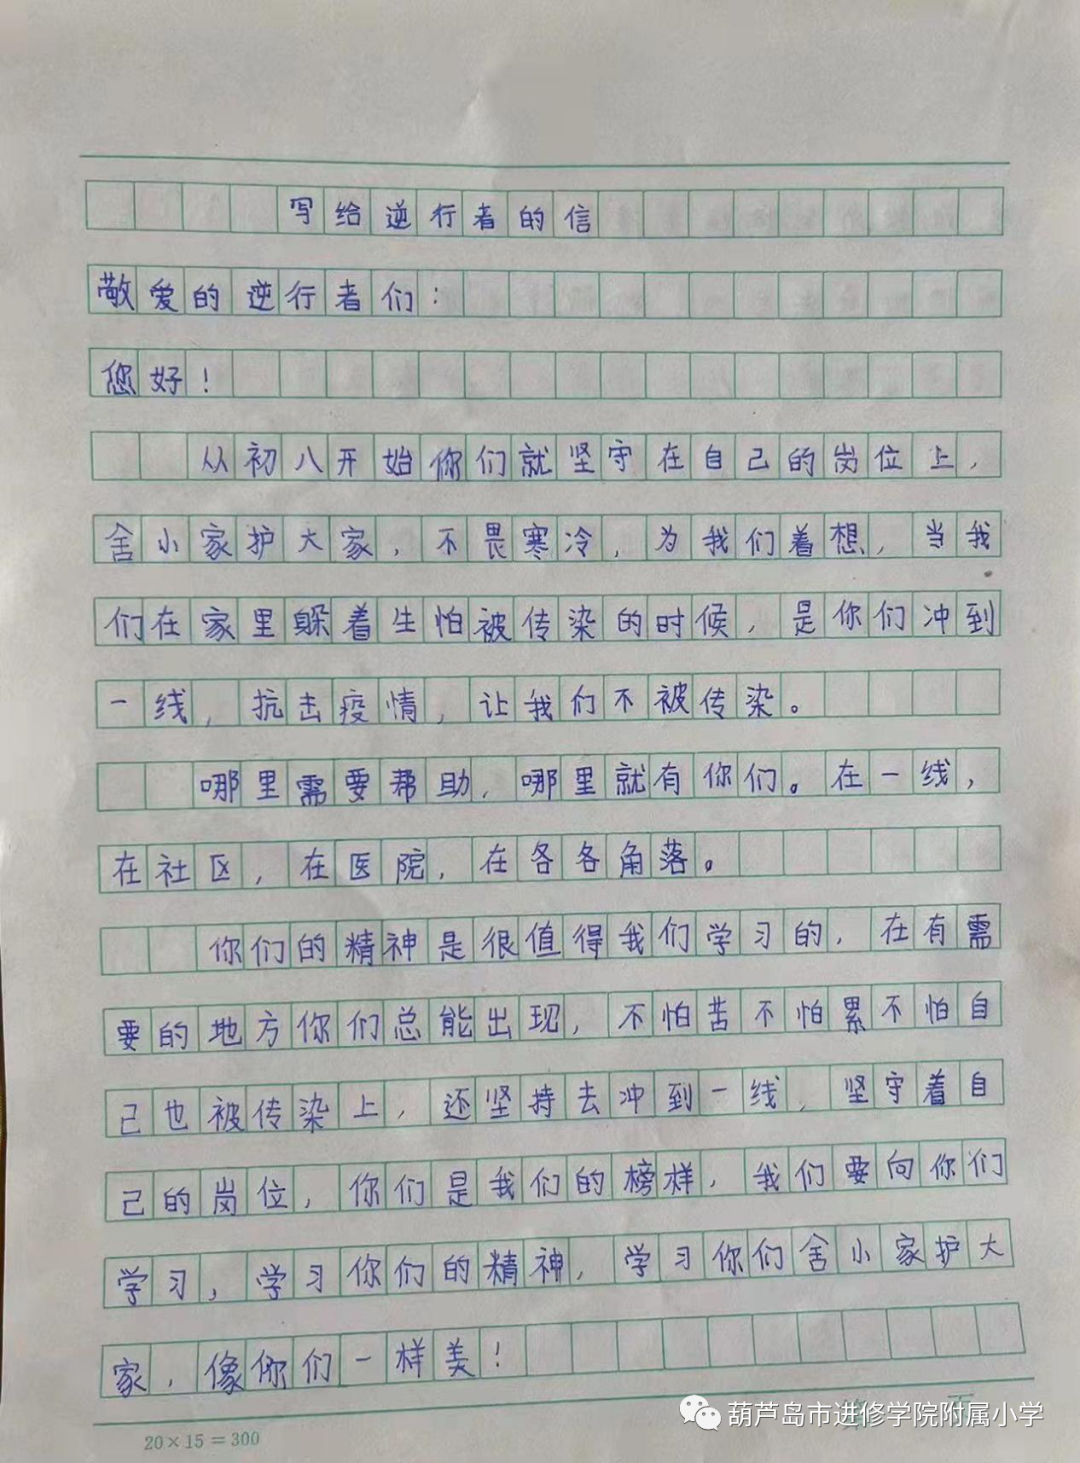 写给逆行者的信
敬爱的逆行者们：
您好！
从初八开始你们就坚守在自己的岗位上，
舍小家护大家，不畏寒冷，为我们着想，当我
们在家里躲着生怕被传染的时候，是你们冲到
一线，抗击疫情，让我们不被传染。
哪里需要帮助，哪里就有你们。在一线，
在社区，在医院，在各各角落。
你们的精神是很值得我们学习的，在有需
要的地方你们总能出现，不怕苦不怕累不怕自
己也被传染上，还坚持去冲到一线，坚守着自
己的岗位，你们是我们的榜样，我们要向你们
学习，学习你们的精神，学习你们舍小家护大
家，像你们一样美！
20×15=300
葫芦岛市进修学院附属小学